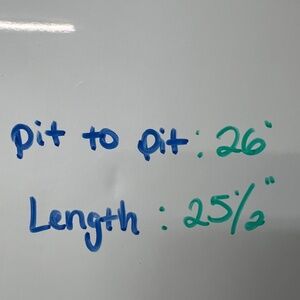 pit to pit : 26"
Length : 25 1/2"